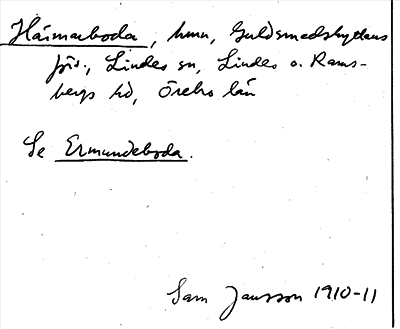 Härmarboda, hmn, Guldsmedshyttans
förs., Lindes sn, Lindes o. Rams-
bergs hd, Örebro län
Se Ermundeboda.
Sam Jansson 1910-11